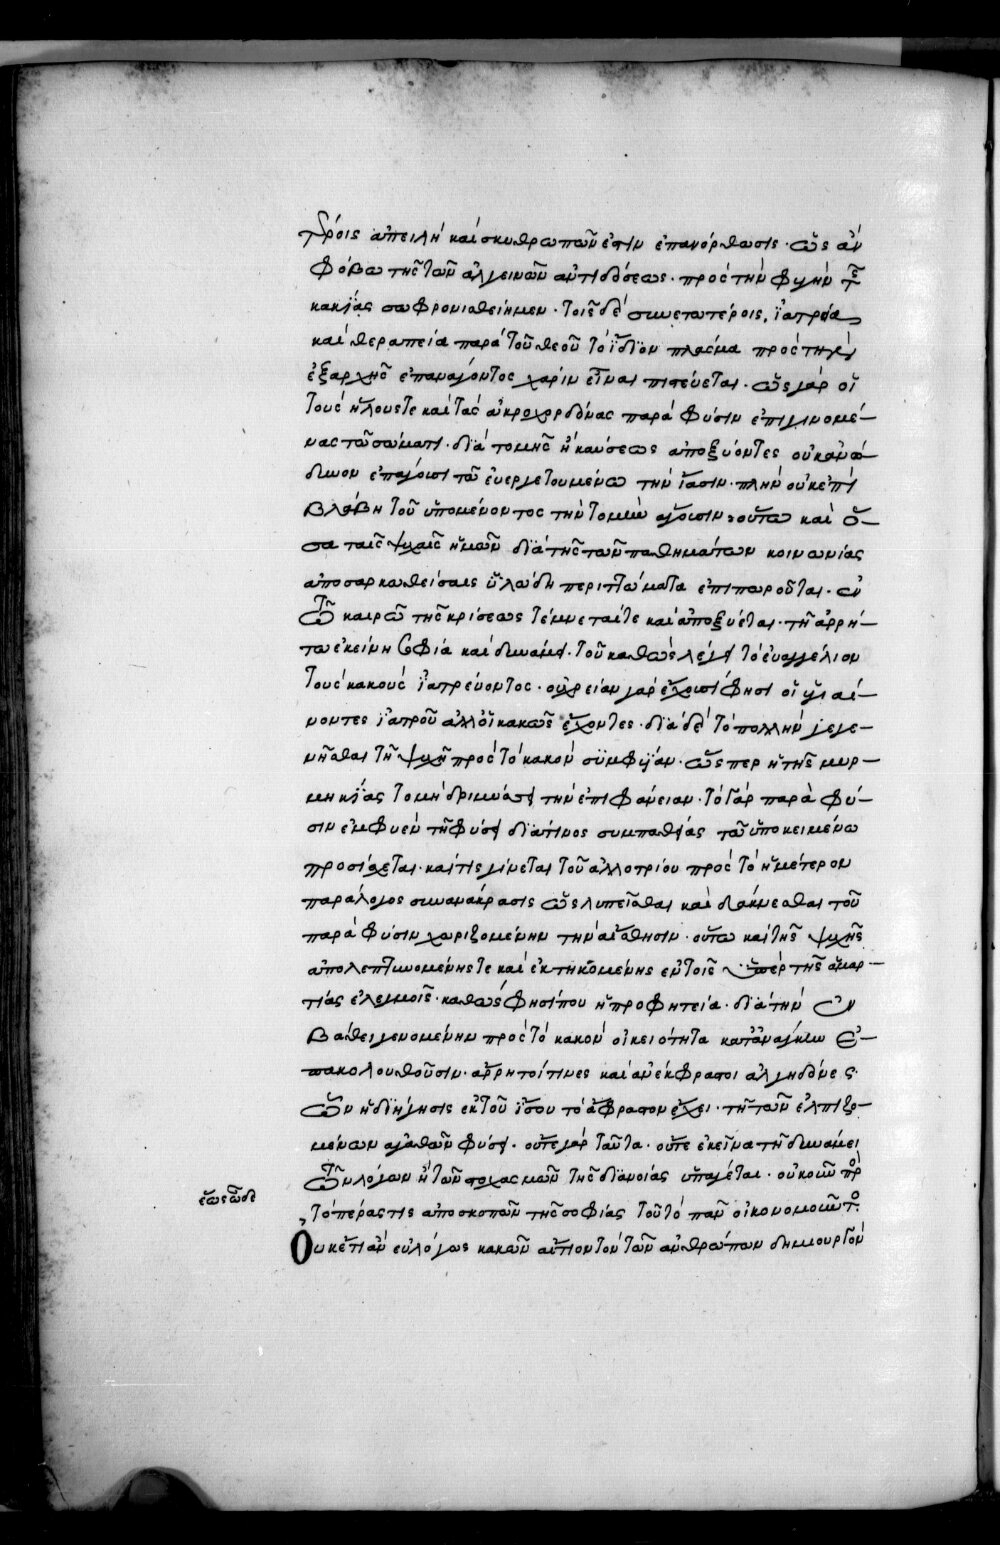 τέροις ἀπειλὴ καὶ σκυθρωπῶν ἐστιν ἐπανόρθωσις· ὡς ἂν
φόβω τῆς τῶν ἀλγεινῶν ἀντιδόσεως· πρὸς τὴν φυγὴν τῆς
κακίας σωφρονισθείημεν· τοῖς δὲ συνετωτέροις, ἰατρεία
καὶ θεραπεία παρὰ τοῦ θεοῦ τὸ ἴδιον πλάσμα πρὸς τὴν
ἐξαρχῆς ἐπανάγοντος χάριν εἶναι πιστεύεται· ὡς γὰρ οἱ
τοὺς ἥλους τε καὶ τὰς ἀκροχορδόνας παρὰ φύσιν ἐπιγινομέ-
νας τῶ σώματι· διὰ τομῆς ἢ καύσεως ἀποξύοντες οὐκ ἀνώ-
δυνον ἐπάγουσι τῶ εὐεργετουμένω τὴν ἴασιν· πλὴν οὐκ ἐπὶ
βλάβη τοῦ ὑπομένοντος τὴν τομὴν ἄγουσιν· οὕτω καὶ ὅ-
σα ταῖς ψυχαῖς ἡμῶν διὰ τῆς τῶν παθημάτων κοινωνίας
ἀποσαρκωθείσαις ὑλώδη περιττώματα ἐπιπωροῦται· ἐν
τῶ καιρῶ τῆς κρίσεως τέμνεταί τε καὶ ἀποξύεται· τῆ ἀρρή-
τω ἐκείνη σοφία καὶ δυνάμει· τοῦ καθὼς λέγει τὸ εὐαγγέλιον
τοὺς κακοὺς ἰατρεύοντος· οὐ χρείαν γὰρ ἔχουσί φησι οἱ ὑγιαί-
νοντες ἰατροῦ ἀλλ' οἱ κακῶς ἔχοντες· διὰ δὲ τὸ πολλὴν γεγε-
νῆσθαι τῆ ψυχῆ πρὸς τὸ κακὸν συμφυΐαν· ὥσπερ ἡ τῆς μυρ-
μηκίας τομὴ δριμύσσει τὴν ἐπιφάνειαν· τὸ γὰρ παρὰ φύ-
σιν ἐμφυὲν τῆ φύσει διά τινος συμπαθείας τῶ ὑποκειμένω
προσίσχεται· καί τις γίνεται τοῦ ἀλλοτρίου πρὸς τὸ ἡμέτερον
παράλογος συνανάκρασις ὡς λυπεῖσθαι καὶ δάκνεσθαι τοῦ
παρὰ φύσιν χωριζομένην τὴν αἴσθησιν· οὕτω καὶ τῆς ψυχῆς
ἀπολεπτυνομένης τε καὶ ἐκτηκομένης ἐν τοῖς ὑπὲρ τῆς ἁμαρ-
τίας ἐλεγμοῖς· καθώς φησί που ἡ προφητεία· διὰ τὴν ἐν
βάθει γενομένην πρὸς τὸ κακὸν οἰκειότητα κατ' ἀνάγκην ἐ-
πακολουθοῦσιν· ἄρρητοί τινες καὶ ἀνέκφραστοι ἀλγηδόνες·
ὧν ἡ διήγησις ἐκ τοῦ ἴσου τὸ ἄφραστον ἔχει· τῆ τῶν ἐλπιζο-
μένων ἀγαθῶν φύσει· οὔτε γὰρ ταῦτα· οὔτε ἐκεῖνα τῆ δυνάμει
τῶν λόγων ἢ τῶ στοχασμῶ τῆς διανοίας ὑπάγεται· οὐκοῦν πρὸς
τὸ πέρας τις ἀποσκοπῶν τῆς σοφίας τοῦ τὸ πᾶν οἰκονομοῦντος
ἕως ὧδε
Οὐκέτι ἂν εὐλόγως κακῶν αἴτιον τὸν τῶν ἀνθρώπων δημιουργὸν